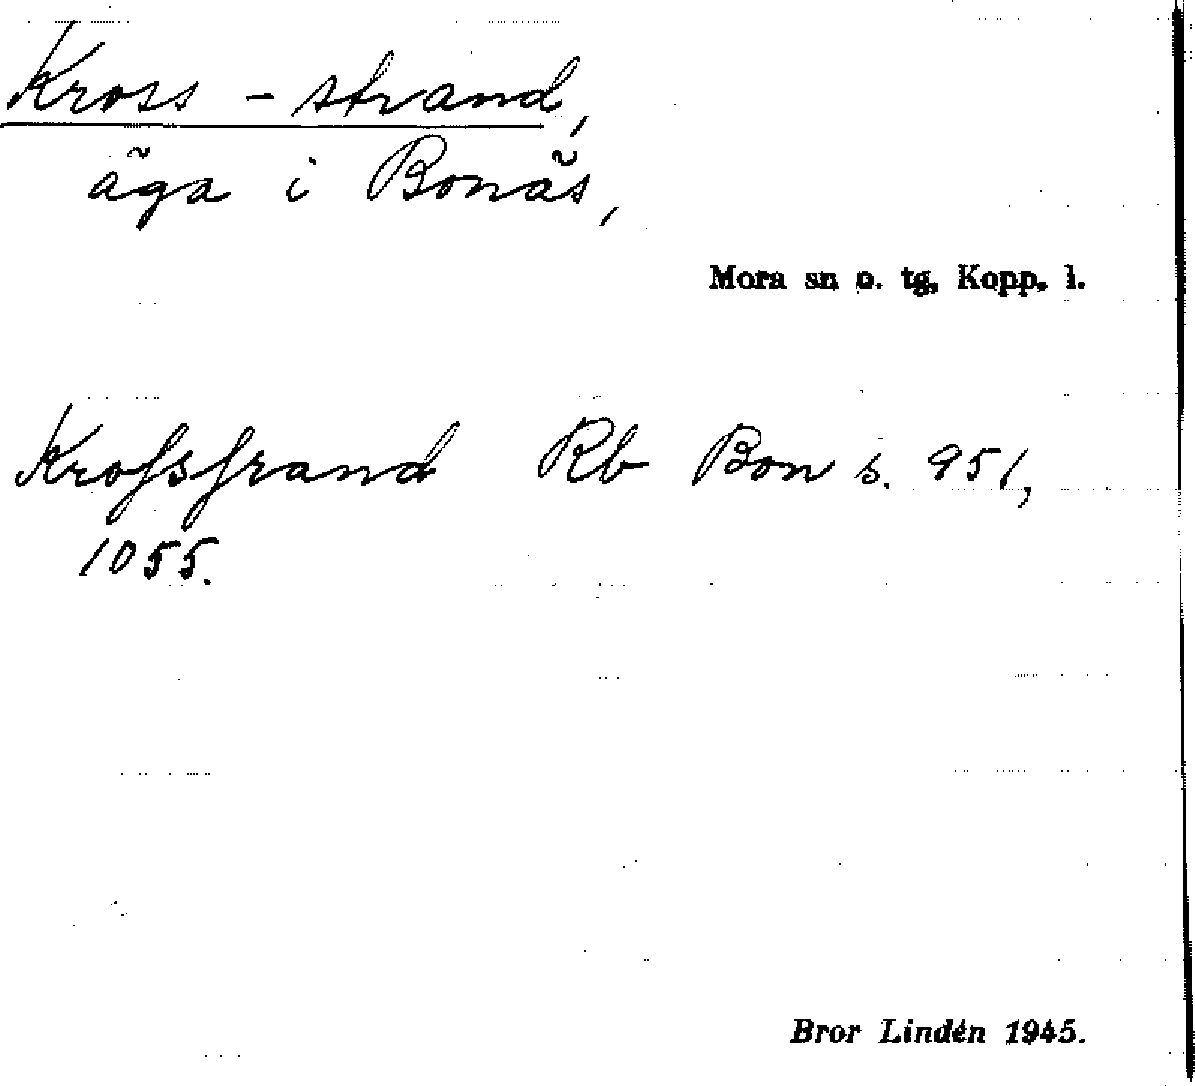 Kross - strand,
äga i Bonäs,
Mora sn o. tg, Kopp. l.
Kroſsſtrand Rb Bon s. 951,
1055.
Bror Lindén 1945.